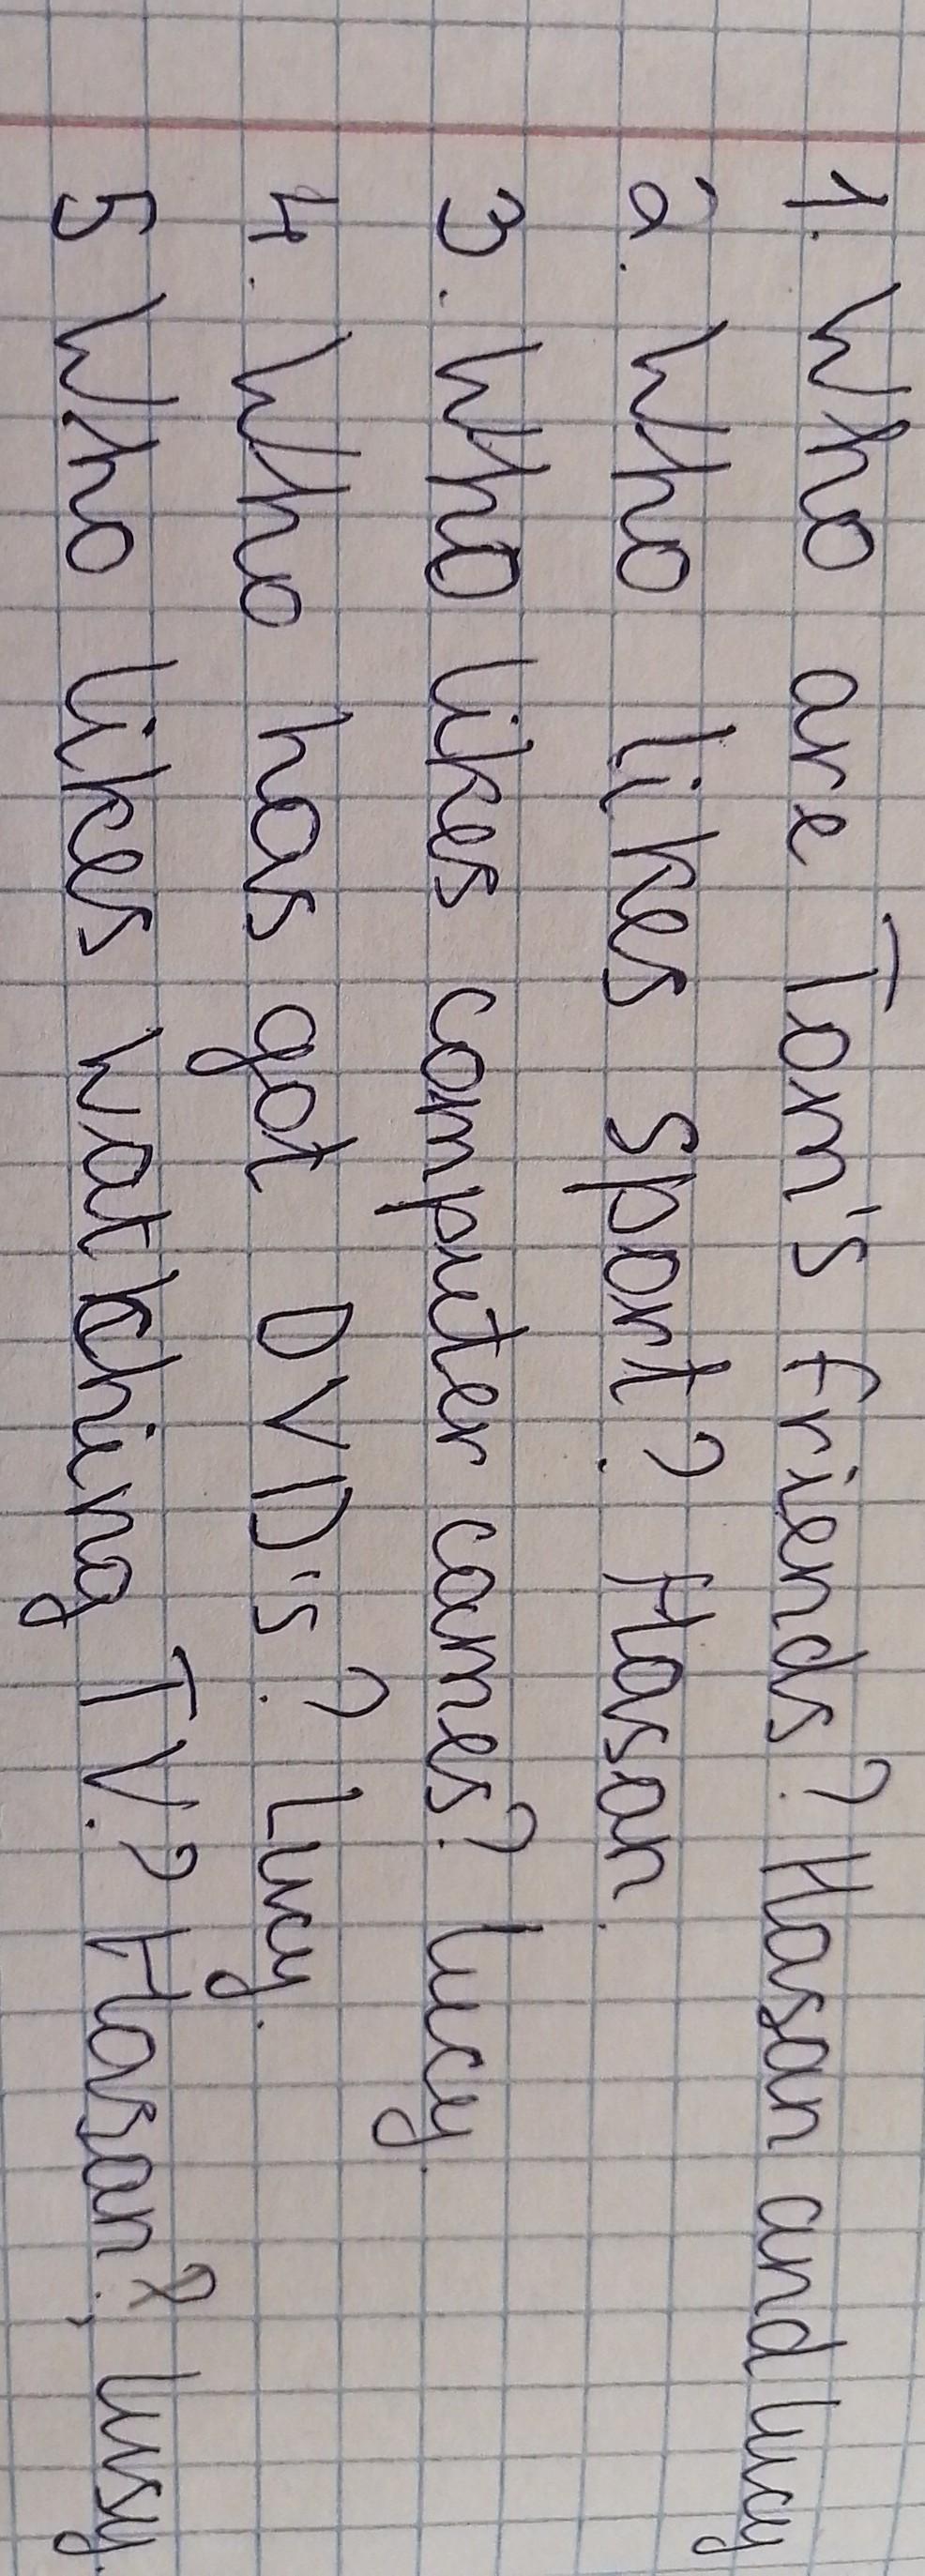 1. Who are Tom's friends? Hasan and Lucy
2. Who likes sport? Hasan.
3. Who likes computer cames? Lucy.
4. Who has got DVD's? Lucy.
5 Who likes watching TV.? Hasan?, Lusy.